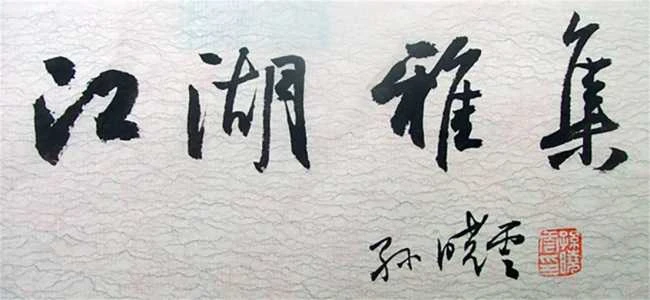 江湖雅集
孙晓云